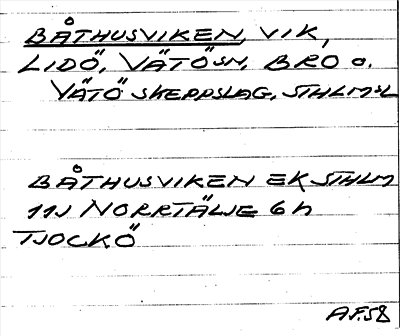 BÅTHUSVIKEN, VIK,
LIDÖ, VÄTÖ SN, BRO O.
VÄTÖ SKEPPSLAG, STHLM:L
BÅTHUSVIKEN EK STHLM
11J NORRTÄLJE 6h
TJOCKÖ
AF.58